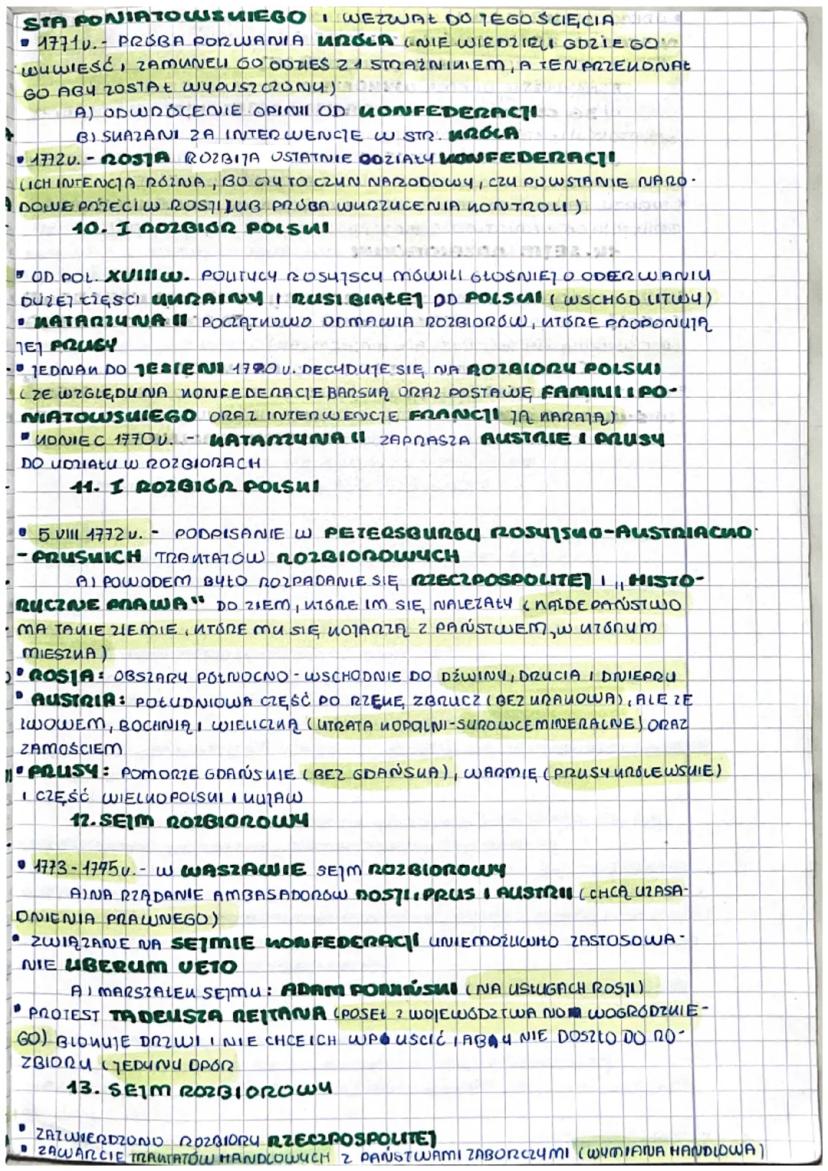 STA PONIATOWSKIEGO I WEZWAŁ DO JEGO ŚCIĘCIA
• 1771r. - PRÓBA PORWANIA KRÓLA (NIE WIEDZIELI GDZIE GO
WYWIEŚĆ, ZAMKNELI GO GDZIEŚ Z 1 STRAŻNIKIEM, A TEN PRZEKONAŁ
GO ABY ZOSTAŁ WYPUSZCZONY)
A) ODWRÓCENIE OPINII OD KONFEDERACJI
B) SKAZANI ZA INTERWENCJE W STR. KRÓLA
• 1772r. - ROSJA ROZBIJA OSTATNIE ODZIAŁY KONFEDERACJI
(ICH INTENCJA RÓŻNA, BO CZY TO CZYN NARODOWY, CZY POWSTANIE NARO-
DOWE PRZECIW ROSJI LUB PRÓBA WYRZUCENIA KONTROLI)
10. I ROZBIÓR POLSKI
• OD POŁ. XVIII W. POLITYCY ROSYJSCY MÓWILI GŁOŚNIEJ O ODERWANIU
DUŻEJ CZĘŚCI UKRAINY I RUSI BIAŁEJ OD POLSKI (WSCHÓD LITWY)
• KATARZYNA II POCZĄTKOWO ODMAWIA ROZBIORÓW, KTÓRE PROPONUJĄ
JEJ PRUSY
• JEDNAK DO JESIENI 1770 r. DECYDUJE SIĘ NA ROZBIORY POLSKI
(ZE WZGLĘDU NA KONFEDERACJE BARSKĄ ORAZ POSTAWĘ FAMILII I PO-
NIATOWSKIEGO ORAZ INTERWENCJE FRANCJI JĄ KARAJĄ)
• KONIEC 1770r. - KATARZYNA II ZAPRASZA AUSTRIE I PRUSY
DO UDZIAŁU W ROZBIORACH
11. I ROZBIÓR POLSKI
• 5 VIII 1772r. - PODPISANIE W PETERSBURGU ROSYJSKO-AUSTRIACKO-
-PRUSKICH TRAKTATÓW ROZBIOROWYCH
A) POWODEM BYŁO ROZPADANIE SIĘ RZECZPOSPOLITEJ I „HISTO-
RYCZNE PRAWA" DO ZIEM, KTÓRE IM SIĘ NALEŻAŁY (KAŻDE PAŃSTWO
MA TAKIE ZIEMIE, KTÓRE MU SIĘ KOJARZĄ Z PAŃSTWEM, W KTÓRYM
MIESZKA)
• ROSJA: OBSZARY PÓŁNOCNO-WSCHODNIE DO DŹWINY, DRUCIA I DNIEPRU
• AUSTRIA: POŁUDNIOWA CZĘŚĆ PO RZEKĘ ZBRUCZ (BEZ KRAKOWA), ALE ZE
LWOWEM, BOCHNIĄ I WIELICZKĄ (UTRATA KOPALNI-SUROWCE MINERALNE) ORAZ
ZAMOŚCIEM
• PRUSY: POMORZE GDAŃSKIE (BEZ GDAŃSKA), WARMIĘ (PRUSY KRÓLEWSKIE)
I CZĘŚĆ WIELKOPOLSKI I KUJAW
12. SEJM ROZBIOROWY
• 1773-1775r. - W WASZAWIE SEJM ROZBIOROWY
A) NA RZĄDANIE AMBASADORÓW ROSJI, PRUS I AUSTRII (CHCĄ UZASA-
DNIENIA PRAWNEGO)
• ZWIĄZANE NA SEJMIE KONFEDERACJI UNIEMOŻLIWIŁO ZASTOSOWA-
NIE LIBERUM VETO
A) MARSZAŁEK SEJMU: ADAM PONIŃSKI (NA USŁUGACH ROSJI)
• PROTEST TADEUSZA REJTANA (POSEŁ Z WOJEWÓDZTWA NO WOGRÓDZKIE-
GO) BLOKUJE DRZWI I NIE CHCE ICH WPUSCIĆ (ABY NIE DOSZŁO DO RO-
ZBIORU (JEDYNY OPÓR
13. SEJM ROZBIOROWY
• ZATWIERDZONO ROZBIORY RZECZPOSPOLITEJ
• ZAWARCIE TRAKTATÓW HANDLOWYCH Z PAŃSTWAMI ZABORCZYMI (WYMIANA HANDLOWA)